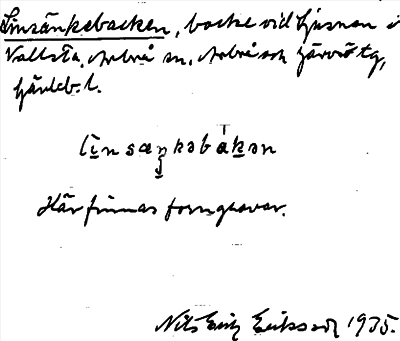 Linsänkebacken, backe vid Ljusnan i
Vallsta, Arbrå sn, Arbrå och Järvsö tg,
Gävleb. l.
linsæŋkəbakən
Här finnas forngravar.
Nils Erik Eriksson 1935.